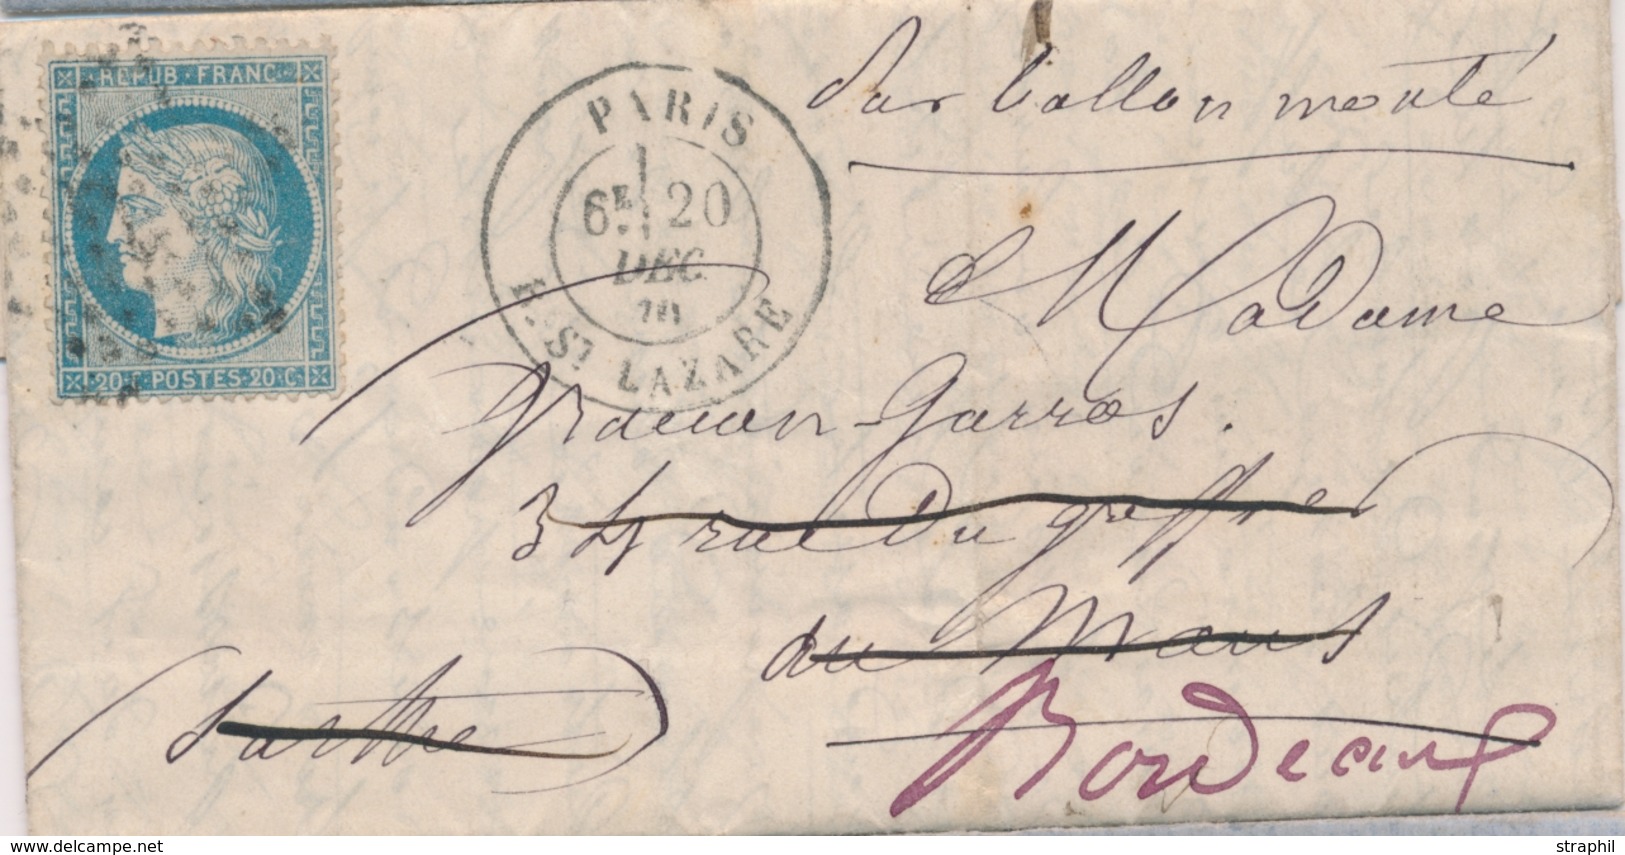 REPUB. FRANC.
20 C. POSTES-20 C.
PARIS
6E 20
DEC.
70
R. ST LAZARE
Par ballon monté
Madame
Garros.
34 rue du greffier
au Mans
Sarthe
Bordeaux
straphil